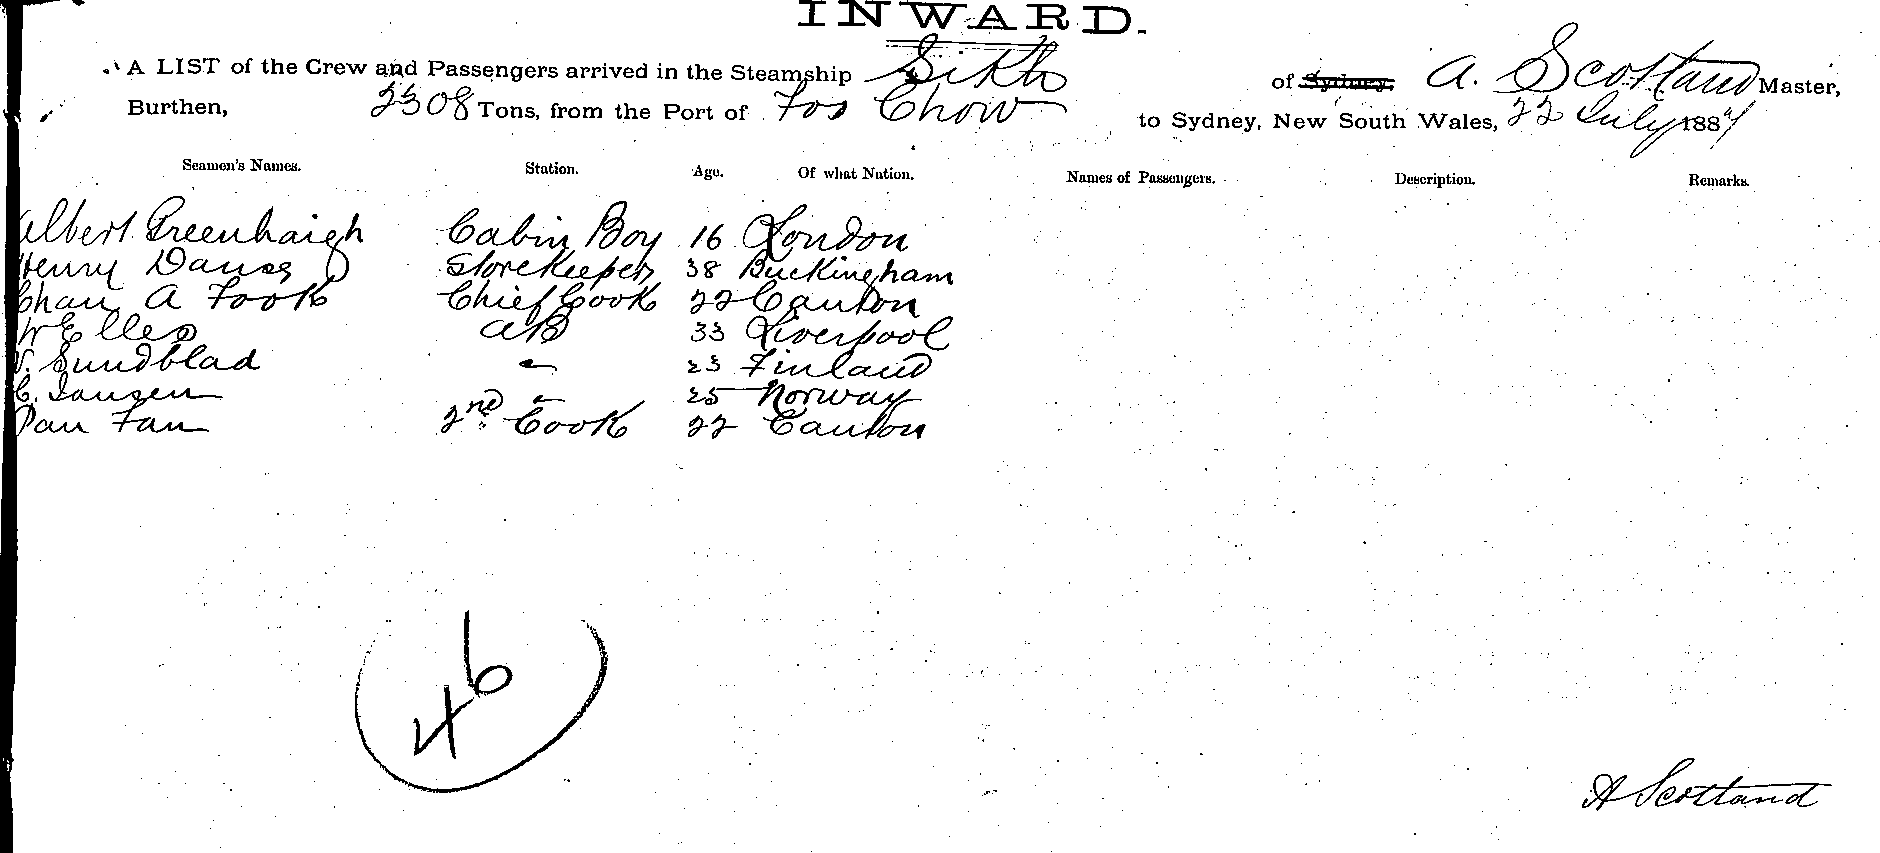 INWARD.
A LIST of the Crew and Passengers arrived in the Steamship Sikh of Sydney, A. Scotland Master,
Burthen, 2308 Tons, from the Port of Foo Chow to Sydney, New South Wales, 22 July 1887
Seamen's Names. Station. Age. Of what Nation. Names of Passengers. Description. Remarks.
Albert Greenhaigh Cabin Boy 16 London
Henry Storekeeper 38 Buckingham
Chan A Fook Chief Cook 22 Canton
W Elles AB 33 Liverpool
V. Sundblad " 23 Finland
C. Jansen " 25 Norway
Pan Fan 2nd Cook 22 Canton
46
A Scotland